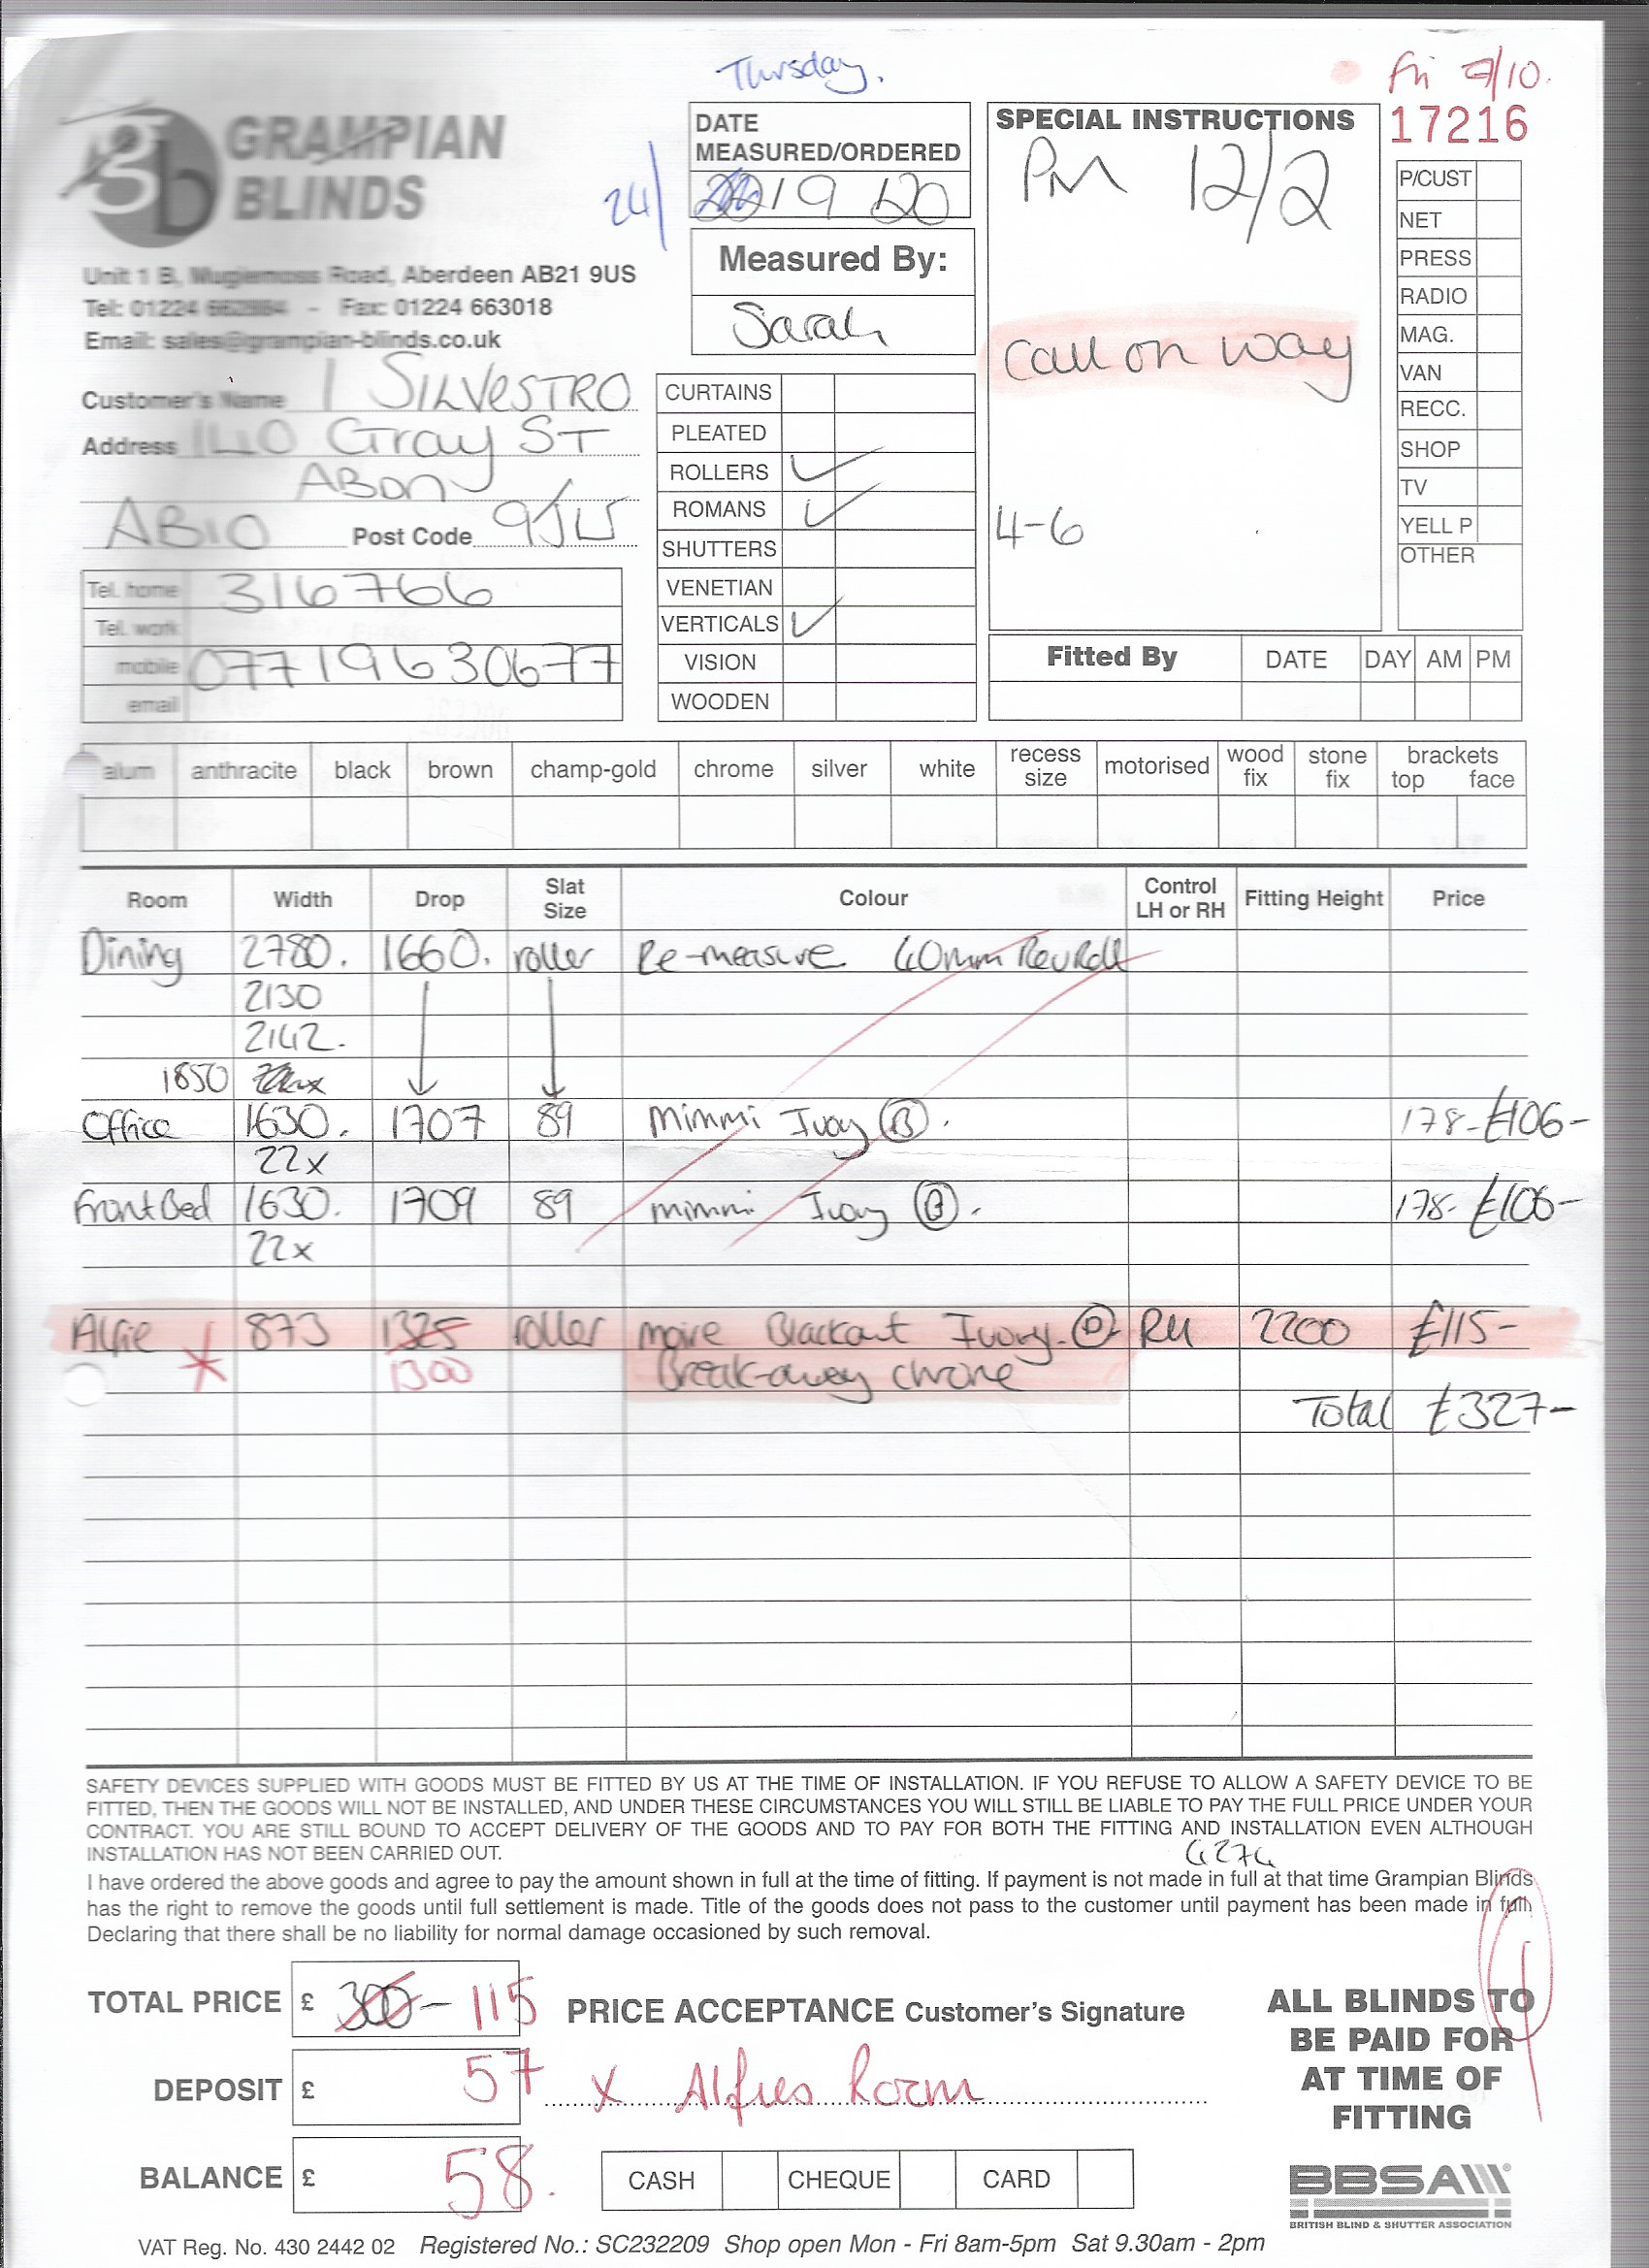 Thursday.
Fri 9/10.
17216
gb GRAMPIAN
BLINDS
Unit 1 B, Mugiemoss Road, Aberdeen AB21 9US
Tel: 01224 - Fax: 01224 663018
Email: sales@grampian-blinds.co.uk
DATE
MEASURED/ORDERED
24/ 19 20
Measured By:
Sarah
SPECIAL INSTRUCTIONS
PM 12/2
Call on way
4-6
P/CUST
NET
PRESS
RADIO
MAG.
VAN
RECC.
SHOP
TV
YELL P
OTHER
Customer's Name I SILVESTRO
Address 140 Gray ST
ABDN
AB10 Post Code 9JU
Tel. home 316766
Tel. work
mobile 07719630677
email
CURTAINS
PLEATED
ROLLERS ✓
ROMANS ✓
SHUTTERS
VENETIAN
VERTICALS ✓
VISION
WOODEN
Fitted By DATE DAY AM PM
alum anthracite black brown champ-gold chrome silver white recess size motorised wood fix stone fix brackets top face
Room Width Drop Slat Size Colour Control LH or RH Fitting Height Price
Dining 2780. 1660. roller Re-measure 40mm RevRoll
2130
2142.
1850
Office 1630. 1707 89 Mimmi Ivory (B). 178- £106-
22x
Front Bed 1630. 1709 89 mimmi Ivory (B). 178- £106-
22x
Alfie 873 1325 roller moire Blackout Ivory. (D) RH 2200 £115-
* 1300 Break-away chrome
Total £327-
SAFETY DEVICES SUPPLIED WITH GOODS MUST BE FITTED BY US AT THE TIME OF INSTALLATION. IF YOU REFUSE TO ALLOW A SAFETY DEVICE TO BE
FITTED, THEN THE GOODS WILL NOT BE INSTALLED, AND UNDER THESE CIRCUMSTANCES YOU WILL STILL BE LIABLE TO PAY THE FULL PRICE UNDER YOUR
CONTRACT. YOU ARE STILL BOUND TO ACCEPT DELIVERY OF THE GOODS AND TO PAY FOR BOTH THE FITTING AND INSTALLATION EVEN ALTHOUGH
INSTALLATION HAS NOT BEEN CARRIED OUT.
I have ordered the above goods and agree to pay the amount shown in full at the time of fitting. If payment is not made in full at that time Grampian Blinds
has the right to remove the goods until full settlement is made. Title of the goods does not pass to the customer until payment has been made in full.
Declaring that there shall be no liability for normal damage occasioned by such removal.
TOTAL PRICE £ 300- 115
PRICE ACCEPTANCE Customer's Signature
DEPOSIT £ 57
x Alfies Room
BALANCE £ 58.
CASH CHEQUE CARD
ALL BLINDS TO
BE PAID FOR
AT TIME OF
FITTING
BBSA
BRITISH BLIND & SHUTTER ASSOCIATION
VAT Reg. No. 430 2442 02 Registered No.: SC232209 Shop open Mon - Fri 8am-5pm Sat 9.30am - 2pm